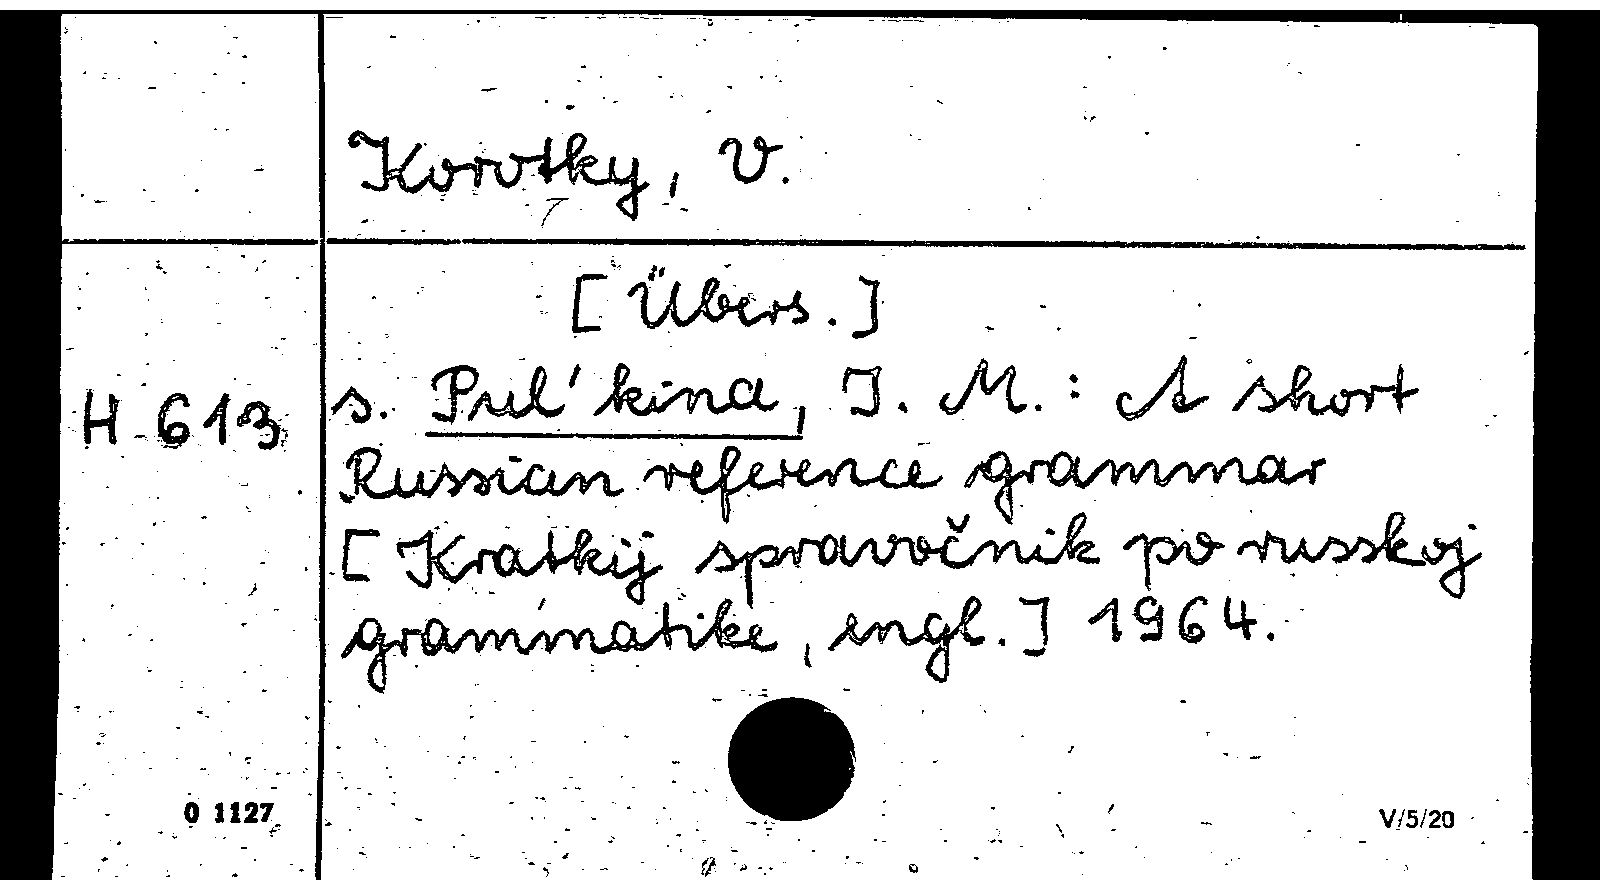 Korotky, V.
[Übers.]
H 613
s. Pul'kina, I. M.: A short
Russian reference grammar
[Kratkij spravočnik po russkoj
grammatike, engl.] 1964.
0 1127
V/5/20